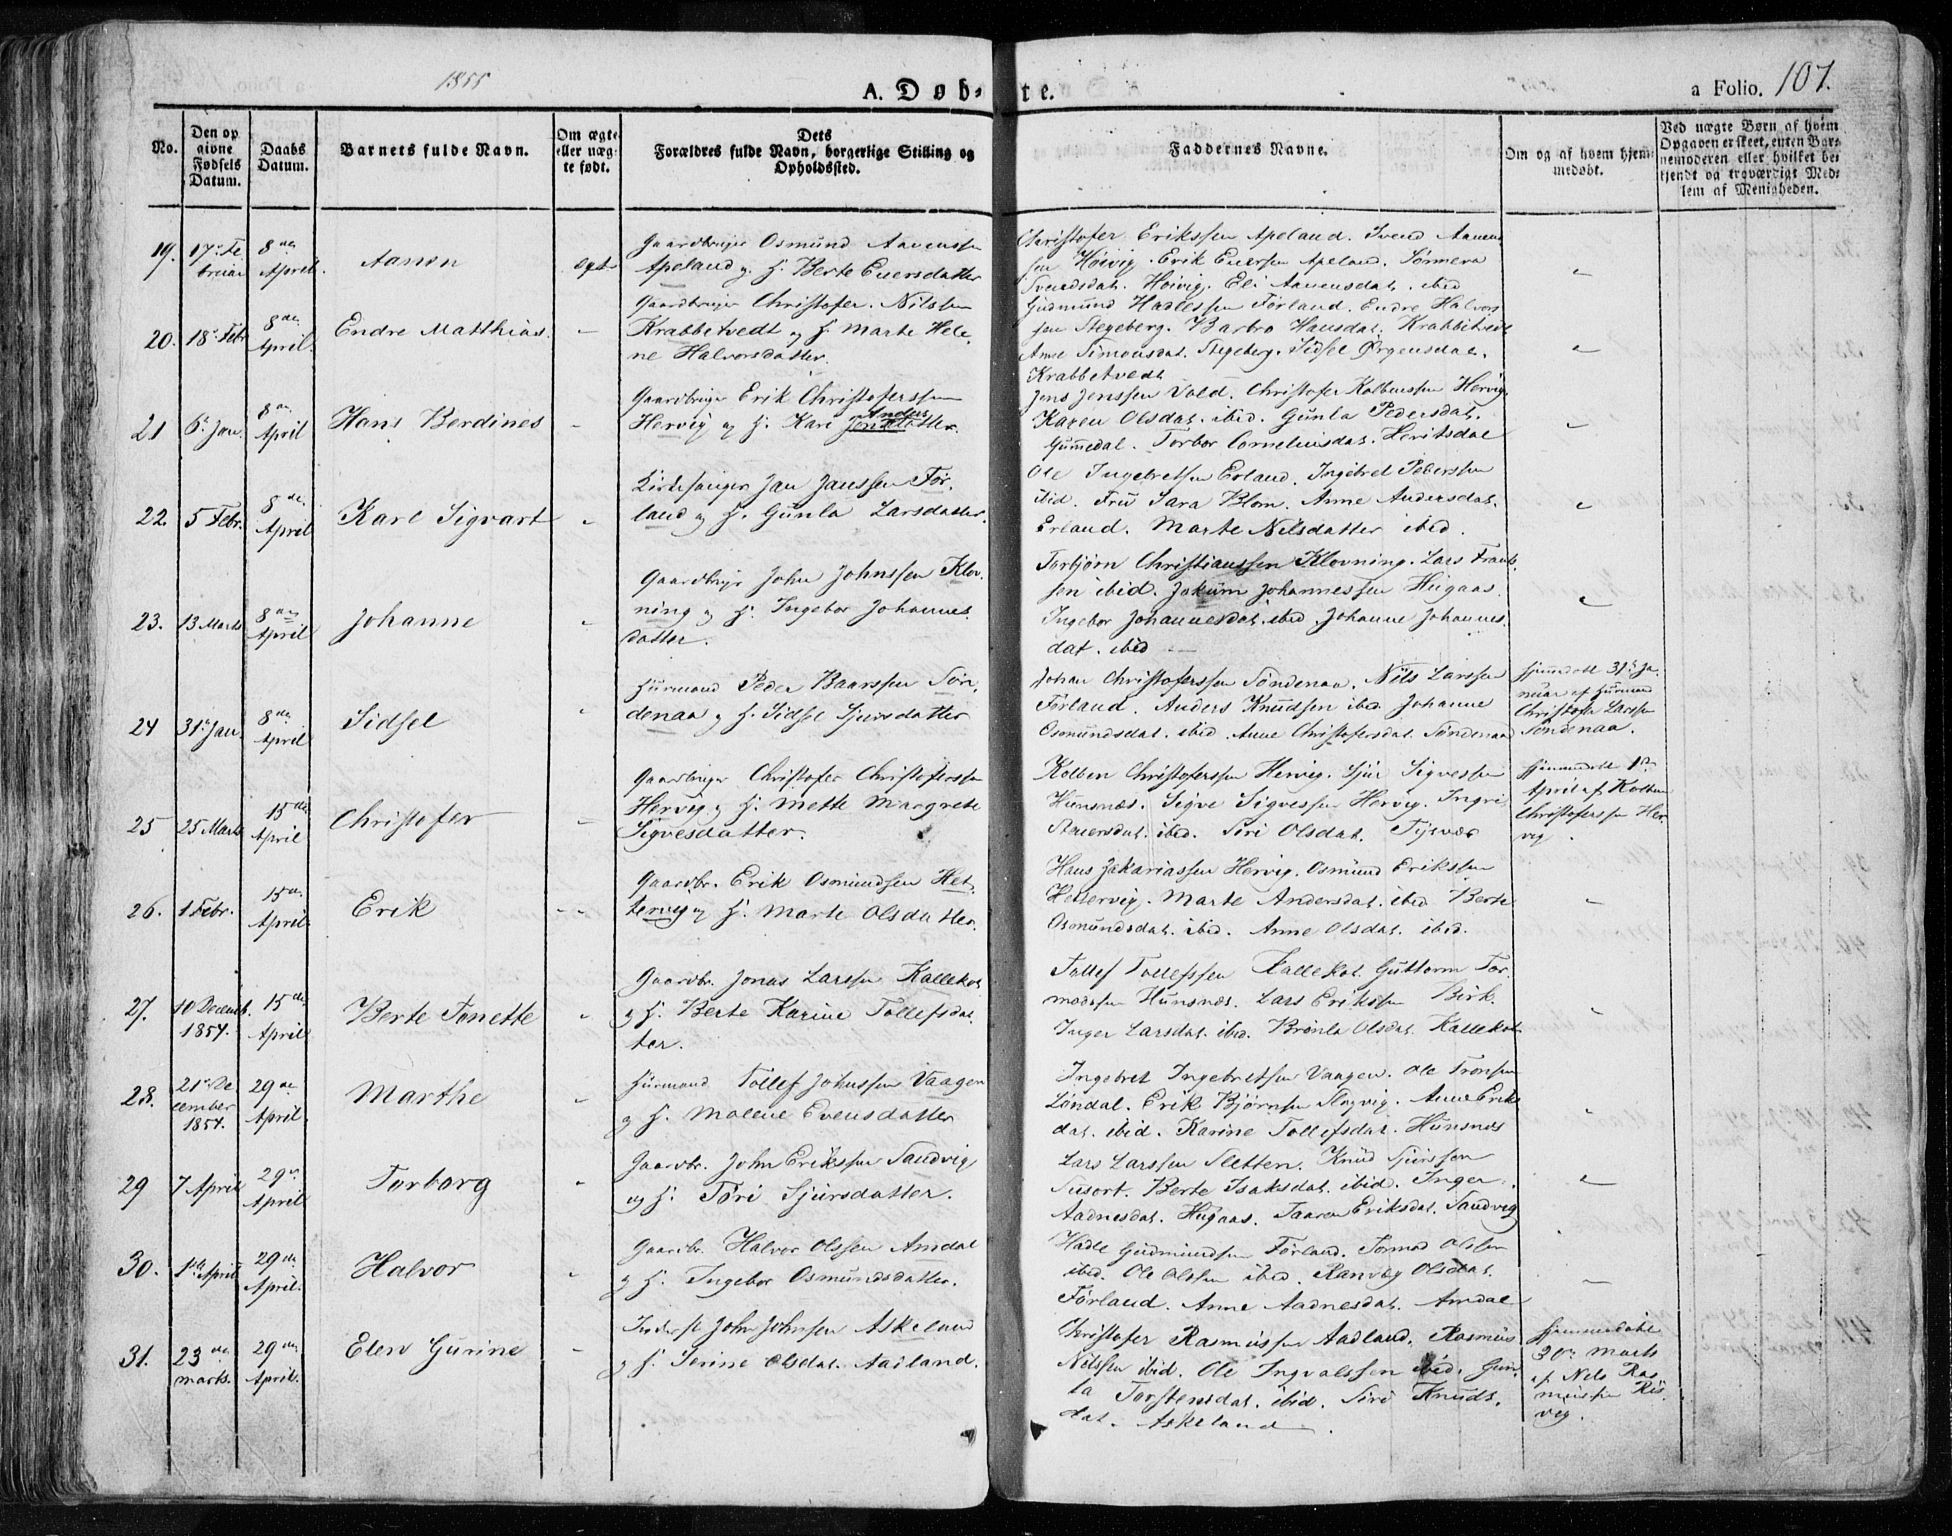 1855
A. Døb-
te.
a Folio. 107.
No.
Den op
givne
Fødsels
Datum.
Daabs
Datum.
Barnets fulde Navn.
Om ægte
eller uæg-
te født.
Dets
Forældres fulde Navn, borgerlige Stilling og
Opholdssted.
Faddernes Navne.
Om og af hvem hjem-
medøbt.
Ved uægte Børn af hvem
Opgaven er skeet, enten Bar-
nemoderen eller hvilket be-
kjendt og troværdigt Med-
lem af Menigheden.
19.
17de Fe
bruar
8de
April.
Aanen
ægte
Gaardbruger Osmund Aanenssen
Apeland og H. Berte Eversdatter
Christofer Erikssen Apeland. Svend Aanens
sen Høivig. Erik Everssen Apeland.
Svendsdat. Høivig. Eli Aanensdat. ibid
20.
18de Febr
8de
April.
Endre Matthias.
Gaardbruger Christofer Nilssen
Krabbetvedt og H. Marte Hele,
ne Halvorsdatter.
Gudmund Hadlessen Førland. Endre Halvors
sen Stegeberg. Barbro Hansdat. Krabbetvedt
Anne Simonsdat. Stegeberg. Sidsel Ørgensdat.
Krabbetvedt
21
6de Jan.
8de
April
Hans Berdines
Gaardbruger Erik Christoferssen
Hervig og H. Kari Anders
datter.
Jens Jenssen Vold. Christofer Kolbenssen Hervig.
Karen Olsdat. ibid. Gunla Pedersdat.
Gumedal. Torbor Corneliusdat. Heritsdal
22.
5 Febr.
8de
April
Karl Sigvart
Kirkesanger Jan Janssen Før,
land og H. Gunla Larsdatter.
Ole Ingebretsen Erland. Ingebret Peterssen
ibid. Fru Sara Blom. Anne Andersdat.
Erland. Marte Nilsdatter ibid.
23.
13 Marts
8de
April
Johanne
Gaardbruger John Johnssen Klov,
ning og H. Ingebor Johannes
datter.
Torbjørn Christianssen Klovning. Lars Frank,
sen ibid. Jokum Johannessen Hugaas.
Ingebor Johannesdat. ibid. Johanne Johannes
dat. ibid
24
31te Jan
8de
April
Sidsel
Huusmand Peder Baarssen Søn,
denaa og H. Sidsel Sjursdatter
Johan Christoferssen Søndenaa. Nils Larssen
Førland. Anders Knudsen ibid Johanne
Osmundsdat. ibid. Anne Christofersdat. Søndenaa
Hjemmedøbt 31te Ja
nuar af Huusmand
Christofer Larssen
Søndenaa.
25
25 Marts
15de
April
Christofer
Gaardbruger Christofer Christoferssen
Hervig og H. Mette Margrete
Sigvesdatter.
Kolben Christoferssen Hervig. Sjur Sigvessen
Hunsnæs. Sigve Sigvessen Hervig. Ingri
ibid. Siri Olsdat. Tysvær
Hjemmedøbt 1ste
April af Kolben
Christoferssen Her
vig.
26.
1 Febr.
15de
April.
Erik
Gaardbr. Erik Osmundsen Het,
tervig og H. Marte Olsdatter.
Hans Zakariassen Hervig. Osmund Erikssen
Hettervig. Marte Andersdat. ibid Berte
Osmundsdat. ibid. Anne Olsdat. ibid.
27.
10 Decemb.
1854.
15de
April
Berte Tonette
Gaardbr. Jonas Larssen Kallekot
og H. Berte Karine Tollefsdat
ter.
Tollef Tollefssen Kallekot. Guttorm Tor
modssen Hunsnæs. Lars Erikssen Birk.
Inger Larsdat. ibid. Brønla Olsdat. Kallekot
28.
21de De
cember
1854.
29de
April.
Marthe
Huusmand Tollef Johnssen Vaagen
og H. Malene Evensdatter
Ingebret Ingebretsen Vaagen. Ole Tronsen
Løndal. Erik Bjørnsen Slogvig. Anne Eriks
dat. ibid. Karine Tollefsdat. Hunsnæs
29
7 April
29de
April
Torborg
Gaardbr. John Erikssen Sandvig
og H. Tori Sjursdatter.
Lars Larssen Sletten. Knud Sjurssen
Susort. Berte Isaksdat. ibid. Inger
Aadnesdat. Hugaas. Taaren Eriksdat. Sandvig
30.
1ste April
29de
April.
Halvor
Gaardbr. Halvor Olssen Amdal
og H. Ingebor Osmundsdatter.
Hadle Gudmundsen Førland. Tormod Olssen
ibid. Ole Olssen ibid. Ranveg Olsdat.
Førland. Anne Aadnesdat. Amdal
31.
23de
marts.
29de
April.
Elen Gurine
Inderst John Johnsen Askeland
og H. Serine Olsdat. Aadland.
Christofer Rasmussen Aadland. Rasmus
Nilssen ibid. Ole Ingvalssen ibid. Gun,
la Torstensdat. ibid. Siri Knuds,
dat. Askeland
Hjemmedøbt
30te Marts
af Nils Ras
mussen Riis
vig.